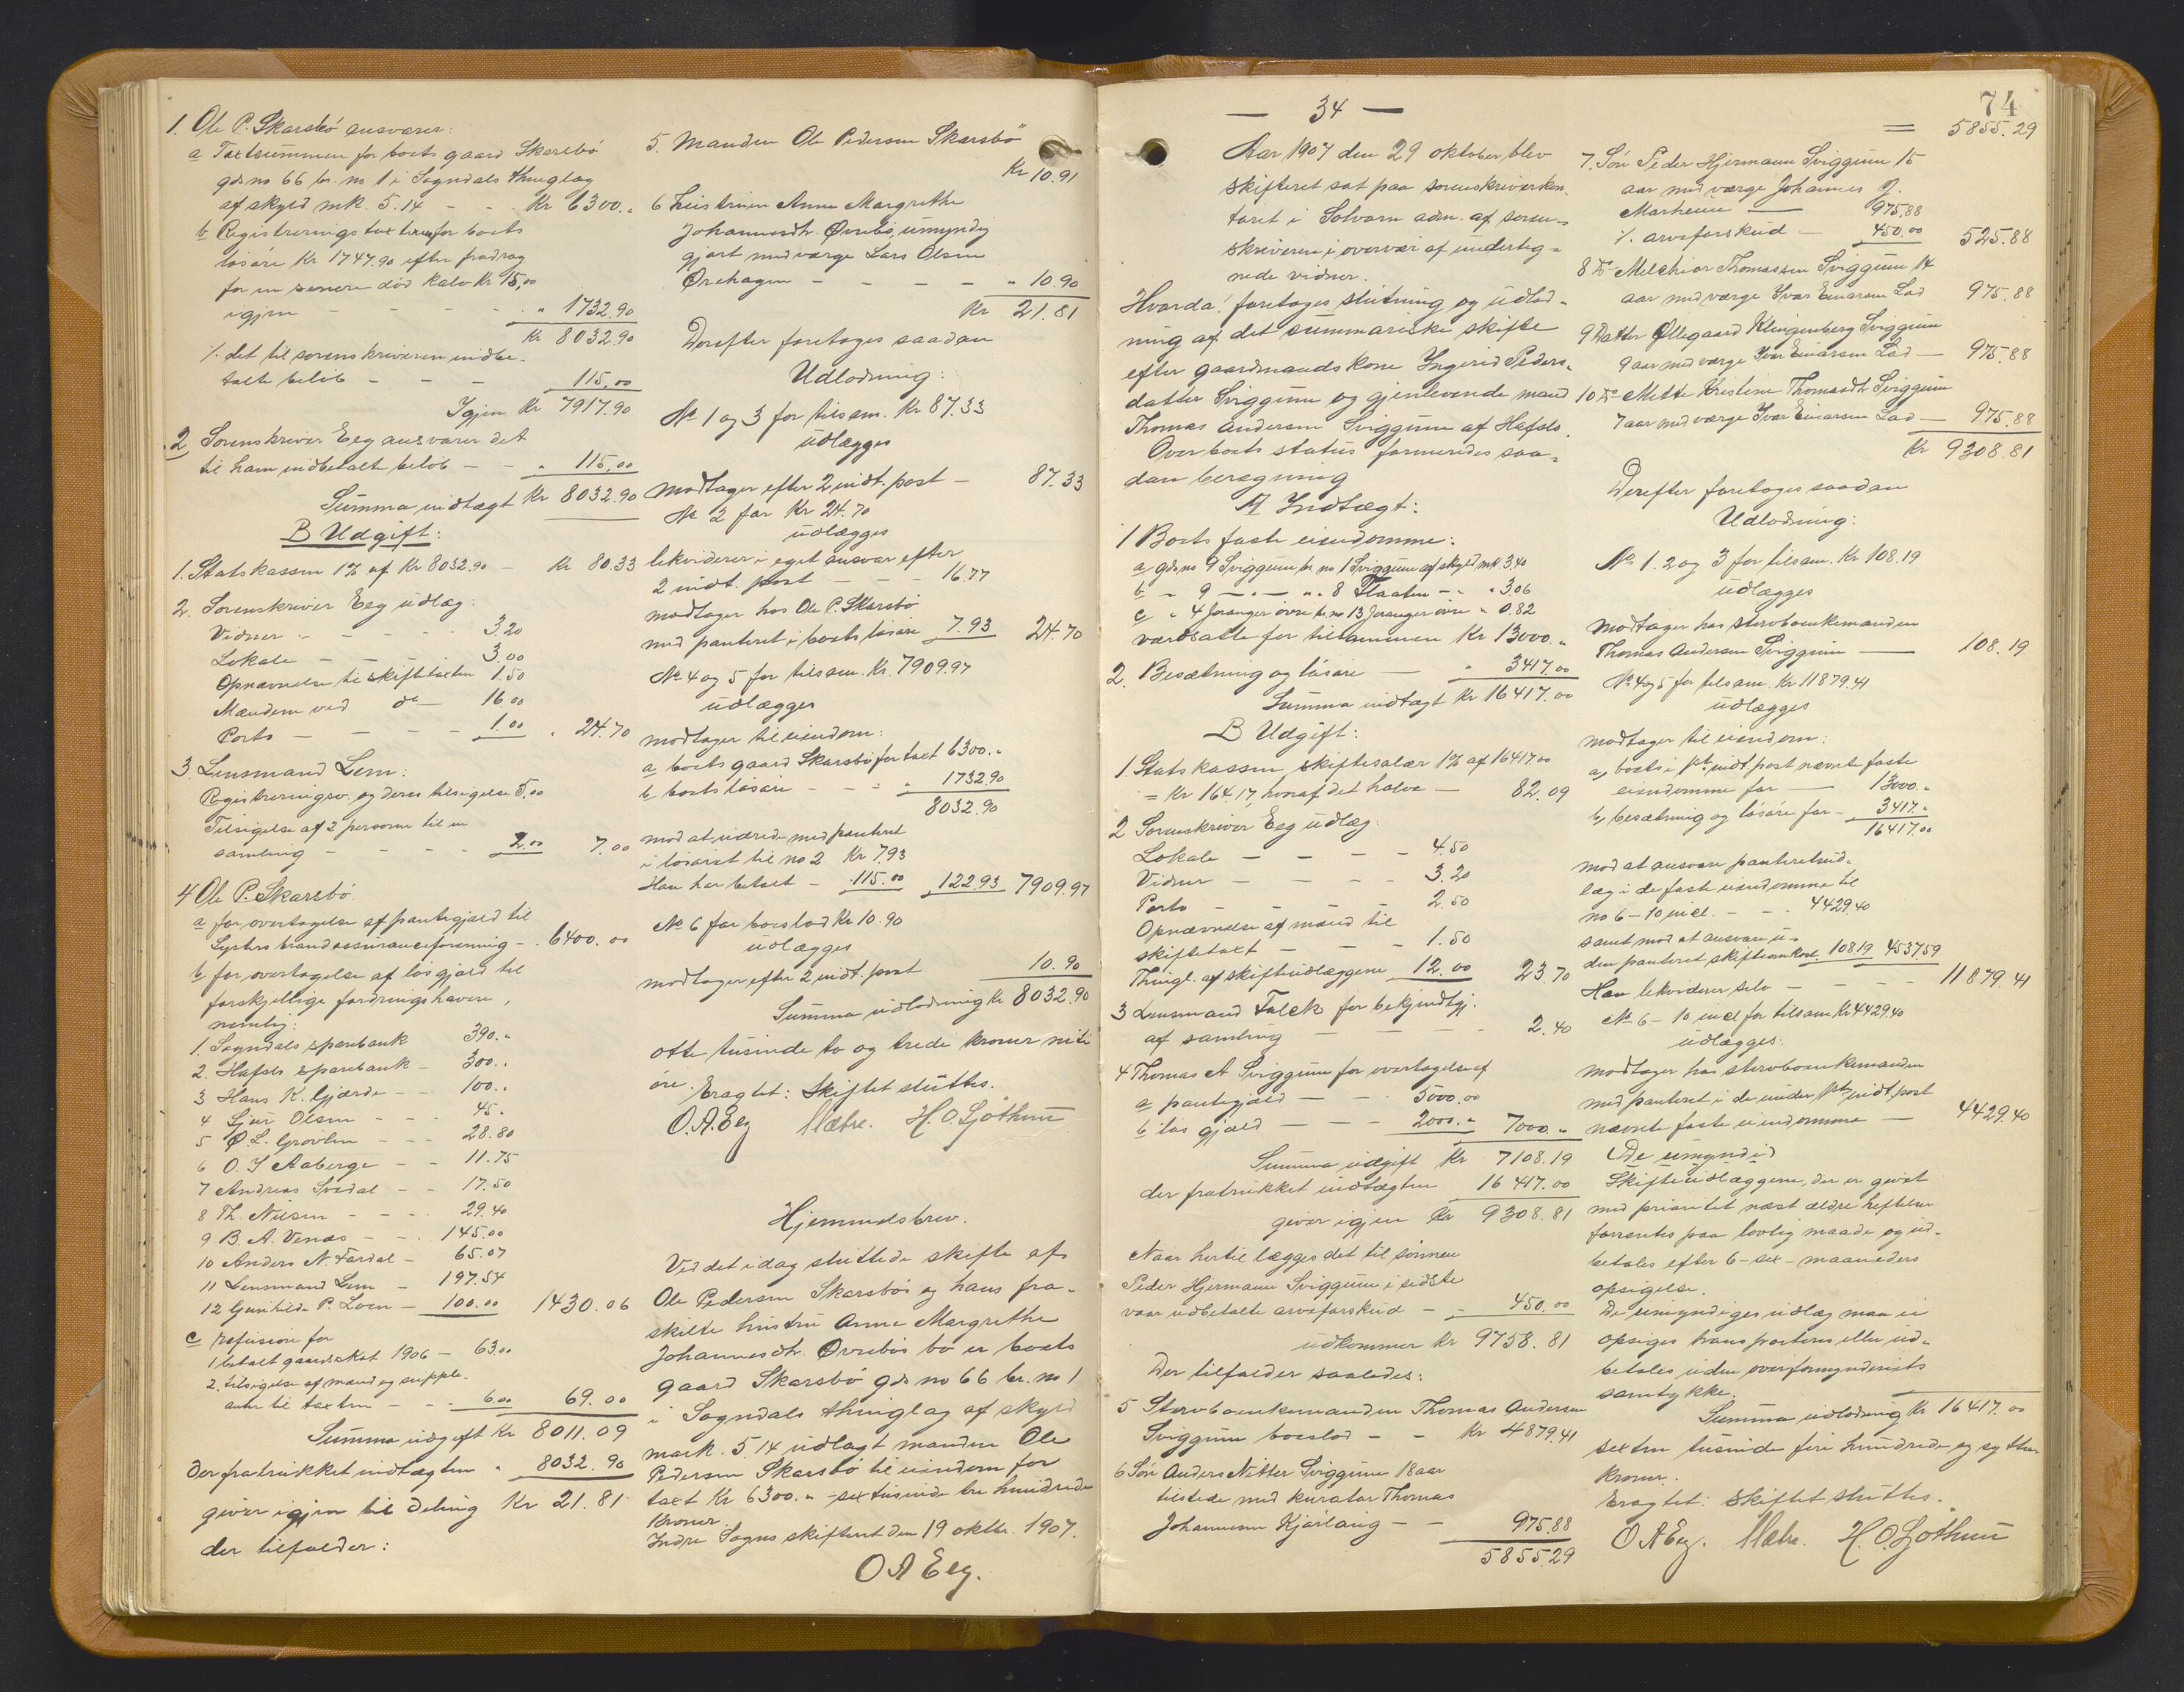 1. Ole P. Skarsbö ansvarer:
a Taxtsummen for boets gaard Skarsbö
gds no 66 br. no 1 i Sogndals thinglag
af skyld mk. 5.14 - - Kr 6300.„
b Registreringstaxten for boets
lösöre Kr 1747.90 efter fradrag
for en senere död kalv Kr 15,00
igjen - - - - „ 1732.90
Kr 8032.90
÷ det til sorenskriveren indbe-
talte belöb - - - 115,00
Igjen Kr 7917.90
2 Sorenskriver Eeg ansvarer det
til ham indbetalte belöb - - „ 115,00
Summa indtægt Kr 8032.90
B Udgift:
1. Statskassen 1% af Kr 8032.90 - Kr 80.33
2. Sorenskriver Eeg udlæg:
Vidner - - - - 3.20
Lokale - - - - 3.00
Opnævnelse til skiftetaxten 1.50
Mændene ved do - 16.00
Porto - - - - 1.00 „ 24.70
3. Lensmand Lem:
Registreringsv. og deres tilsigelse 5.00
Tilsigelse af 2 personer til en
samling - - - - 2.00 7.00
4 Ole P. Skarsbö.
a for overtagelse af pantegjæld til
Lysters brandassuranceforening - . 6400.00
b for overtagelse af lösgjæld til
forskjellige fordringshavere,
nemlig:
1. Sogndals sparebank 390.„
2. Hafslo sparebank - 300.„
3 Hans K. Gjerde - - 100.„
4 Sjur Olsen - - - 45.„
5 Ø. L. Grövlen - - - 28.80
6 O. J Aaberge - - 11.75
7 Andreas Svedal - - 17.50
8 Th. Nilsen - - - 29.40
9 B. A. Venæs - - 145.00
10 Anders N. Fardal - 65.07
11 Lensmand Lem - 197.54
12 Gunhilde P. Loen - 100.00 1430.06
c refusion for
1 betalt gaardskat 1906 - 63.00
2. tilsigelse af mænd og supple-
anter til taxten - - - 6.00 69.00
Summa udgift Kr 8011.09
der fratrukket indtægten „ 8032.90
giver igjen til deling Kr 21.81
der tilfalder:
5. Manden Ole Pedersen Skarsbö
Kr 10.91
6 Hustruen Anna Margrethe
Johannesdtr. Øvrebö, umyndig
gjort med værge Lars Olsen
Ørehagen - - - - „ 10.90
Kr 21.81
Derefter foretages saadan
Udlodning:
No 1 og 3 for tilsam. Kr 87.33
udlægges
modtager efter 2 indt. post - 87.33
No 2 for Kr 24.70
udlægges
likviderer i eget ansvar efter
2 indt. post - - - 16.77
modtager hos Ole P. Skarsbö
med panteret i boets lösöre 7.93 24.70
No 4 og 5 for tilsam. Kr. 7909.97
udlægges
modtager til eiendom:
a boets gaard Skarsbö for taxt 6300.„
b boets lösöre - - - „ 1732.90
8032.90
mod at udrede med panteret
i lösöret til no 2 Kr 7.93
Han har betalt - 115.00 122.93 7909.97
No 6 for boeslod Kr 10.90
udlægges
modtager efter 2 indt. post 10.90
Summa udlodning Kr 8032.90
otte tusinde to og trede kroner niti
öre. Eragtet: Skiftet sluttes.
O.A.Eeg Mæhre. H. O. Sjöthun
Hjemmelsbrev.
Ved det idag sluttede skifte af
Ole Pedersen Skarsbös og hans fra-
skilte hustru Anna Margrethe
Johannesdtr. Øvrebös bo er boets
gaard Skarsbö gds no 66 br. no 1
i Sogndals thinglag af skyld
mark. 5.14 udlagt manden Ole
Pedersen Skarsbö til eiendom for
taxt Kr 6300.„ - sex tusinde tre hundrede
Kroner.
Indre Sogns skifteret den 19 oktbr. 1907.
O A Eeg.
— 34 —
Aar 1907 den 29 oktober blev
skifteret sat paa sorenskriverkon-
toret i Solvorn adm. af soren-
skriveren i overvær af underteg-
nede vidner.
Hvorda! foretoges slutning og udlod-
ning af det summariske skifte
efter gaardmandskone Ingerid Peders-
datter Sviggum og gjenlevende mand
Thomas Andersen Sviggum af Hafslo.
Over boets status formeredes saa-
dan beregning
A Indtægt:
1 Boets faste eiendomme:
a, gds no 9 Sviggum br. no 1 Sviggum af skyld mk. 3.40
b - 9 - „ - „ 8 Flaaten - „ „ 3.06
c „ 4 Joranger övre br. no 13 Joranger övre „ 0.82
værdsatte for tilsammen Kr 13000.„
2. Besætning og lösöre - „ 3417.00
Summa indtægt Kr 16417.00
B Udgift:
1. Statskassen skiftesalær 1% af 16417.00
= Kr 164.17, hvoraf det halve - 82.09
2 Sorenskriver Eeg udlæg:
Lokale - - - - 4.50
Vidner - - - - 3.20
Porto - - - - 2.50
Opnævnelse af mænd til
skiftetaxt - - - 1.50
Thingl. af skifteudlæggene 12.00 23.70
3 Lensmand Falck for bekjendtgj.
af samling - - - - 2.40
4 Thomas A Sviggum for overtagelse af
a pantegjæld - - 5000.00
b lös gjæld - - - 2000.„ 7000.„
Summa udgift Kr 7108.19
der fratrukket indtægten 16 417.00
giver igjen Kr 9308.81
Naar hertil lægges det til sönnen
Peder Hjermann Sviggum i sidste
vaar udbetalte arveforskud - - 450.00
udkommer Kr 9758.81
Der tilfalder saaledes:
5 Stervboenkemanden Thomas Andersen
Sviggum boeslod - - Kr 4879.41
6 Sön Anders Nitter Sviggum 18 aar
tilstede med kurator Thomas
Johannesen Kjörlaug - - 975.88
5855.29
74
= 5855.29
7. Sön Peder Hjermann Sviggum 15
aar med værge Johannes J.
Marheim - 975.88
÷ arveforskud - 450.00 525.88
8 Do Melchior Thomassen Sviggum 14
aar med værge Ivar Einarsen Lad 975.88
9 Datter Øllegaard Klingenberg Sviggum
9 aar med værge Ivar Einarsen Lad - 975.88
10 Do Mette Kristine Thomasdtr Sviggum
7 aar med værge Ivar Einarsen Lad - 975.88
Kr 9308.81
Derefter foretages saadan
Udlodning:
No 1. 2 og 3 for tilsam. Kr 108.19
udlægges
modtager hos stervboenkemanden
Thomas Andersen Sviggum - 108.19
No 4 og 5 for tilsam. Kr 11879.41
udlægges
modtager til eiendom:
a, boets i 1ste indt. post nævnte faste
eiendomme for - 13000.„
b, besætning og lösöre for - 3417.„
16417.00
mod at ansvare panteretsud-
læg i de faste eiendomme til
no 6 - 10 incl. - - - 4429.40
samt mod at ansvare u-
den panteret skifteomkost. 108.19 4537.59
Han likviderer selv - - - - 11879.41
No 6 - 10 incl for tilsam Kr 4429.40
udlægges:
modtager hos stervboenkemanden
med panteret i de under 1ste indt. post
nævnte faste eiendomme - 4429.40
De umyndiges
Skifteudlæggene, der er givet
med prioritet næst ældre heftelser
forrentes paa lovlig maade og ud-
betales efter 6 - sex - maaneders
opsigelse.
De umyndiges udlæg maa ei
opsiges transporteres eller ud-
betales uden overformynderiets
samtykke.
Summa udlodning Kr 16417.00
sexten tusinde fire hundrede og sytten
Kroner.
Eragtet: Skiftet sluttes.
O A Eeg. Mæhre. H. O. Sjöthun